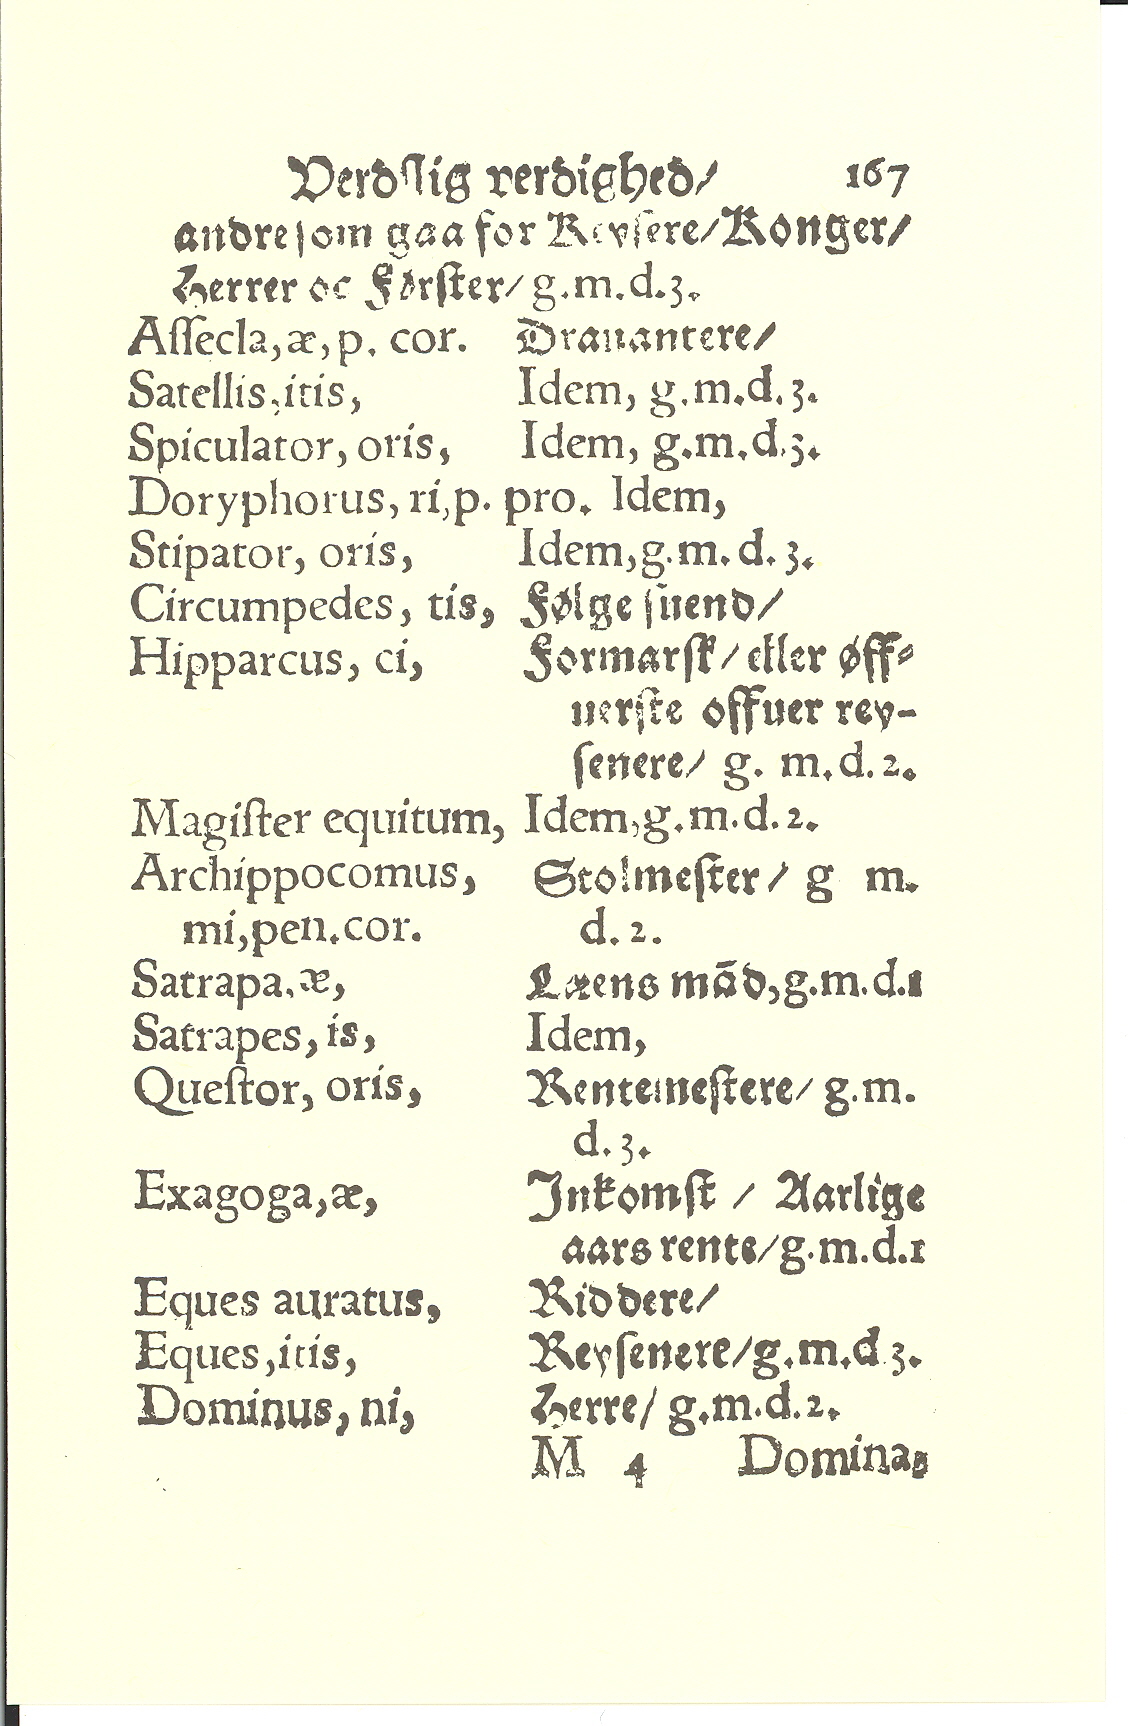 Verdſlig verdighed/ 167
andre ſom gaa for Keyſere/Konger/
Herrer oc Førſter/ g.m.d.3.
Aſſecla,æ,p. cor. Drauantere/
Satellis,itis, Idem, g.m.d.3.
Spiculator, oris, Idem, g.m.d.3.
Doryphorus, ri,p. pro. Idem,
Stipator, oris, Idem,g.m.d.3.
Circumpedes, tis, Følge ſuend/
Hipparcus, ci, Formarſk/ eller øff⸗
uerſte offuer rey-
ſenere/ g. m.d.2.
Magiſter equitum, Idem,g.m.d.2.
Archippocomus, Stolmeſter/ g m.
mi,pen.cor. d.2.
Satrapa,æ, Læens mãd,g.m.d.1
Satrapes, is, Idem,
Queſtor, oris, Rentemeſtere/ g.m.
d.3.
Exagoga,æ, Inkomſt / Aarlige
aars rente/g.m.d.1
Eques auratus, Riddere/
Eques,itis, Reyſenere/g.m.d.3.
Dominus, ni, Herre/ g.m.d.2.
M 4 Domina,